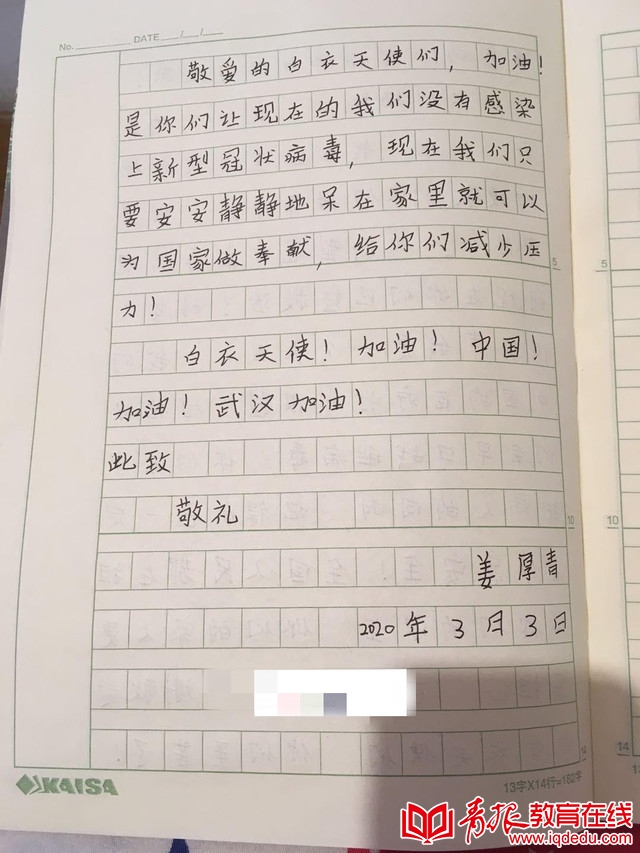 No. DATE / /
敬爱的白衣天使们，加油！
是你们让现在的我们没有感染
上新型冠状病毒，现在我们只
要安安静静地呆在家里就可以
为国家做奉献，给你们减少压
力！
白衣天使！加油！中国！
加油！武汉加油！
此致
敬礼
姜厚青
2020年3月3日
5
10
14
5
10
14
KAISA
13字X14行=182字
青报教育在线
www.iqdedu.com